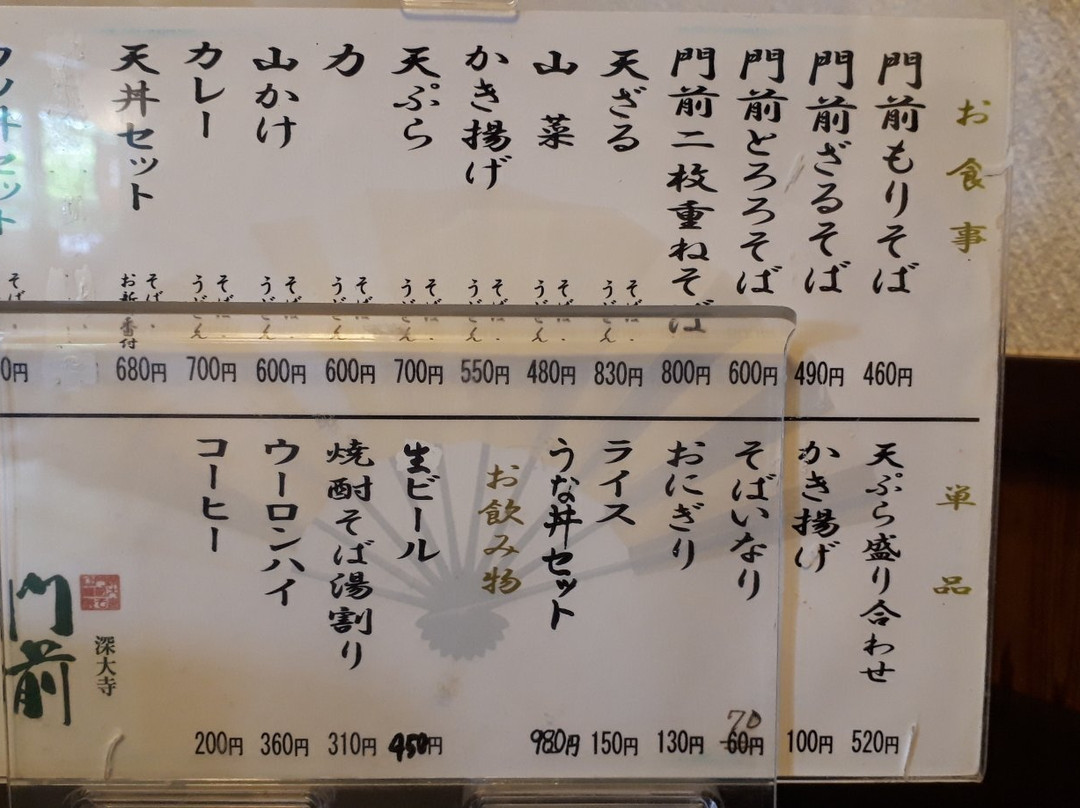 お食事
門前もりそば 460円
門前ざるそば 490円
門前とろろそば 600円
門前二枚重ねそば 800円
天ざる そば・うどん 830円
山菜 そば・うどん 480円
かき揚げ そば・うどん 550円
天ぷら そば・うどん 700円
力 そば・うどん 600円
山かけ そば・うどん 600円
カレー そば・うどん 700円
天丼セット 680円
単品
天ぷら盛り合わせ 520円
かき揚げ 100円
そばいなり 60円 70
おにぎり 130円
ライス 150円
うな丼セット 980円
お飲み物
生ビール 450円
焼酎そば湯割り 310円
ウーロンハイ 360円
コーヒー 200円
深大寺
門前